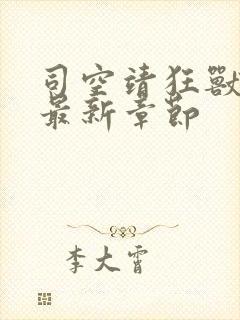 司空靖狂獸
最新章節
李大霄